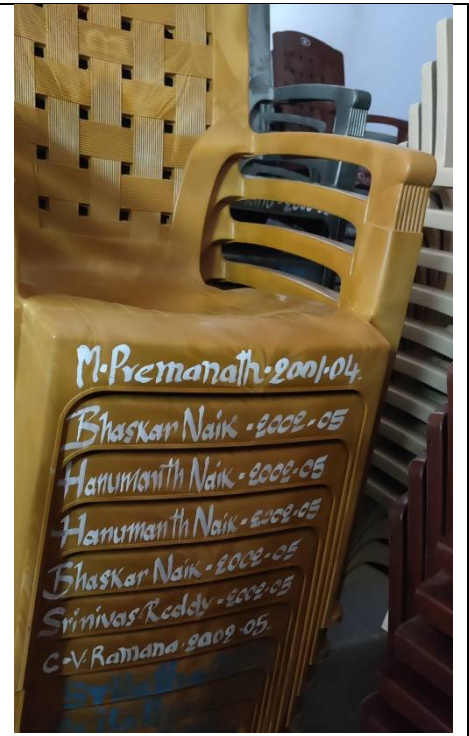 M·Premanath·2001-04.
Bhaskar Naik - 2002-05
Hanumanth Naik - 2002-05
Hanumanth Naik - 2002-05
Bhaskar Naik - 2002-05
Srinivas Reddy - 2002-05
C·V·Ramana·2002-05.